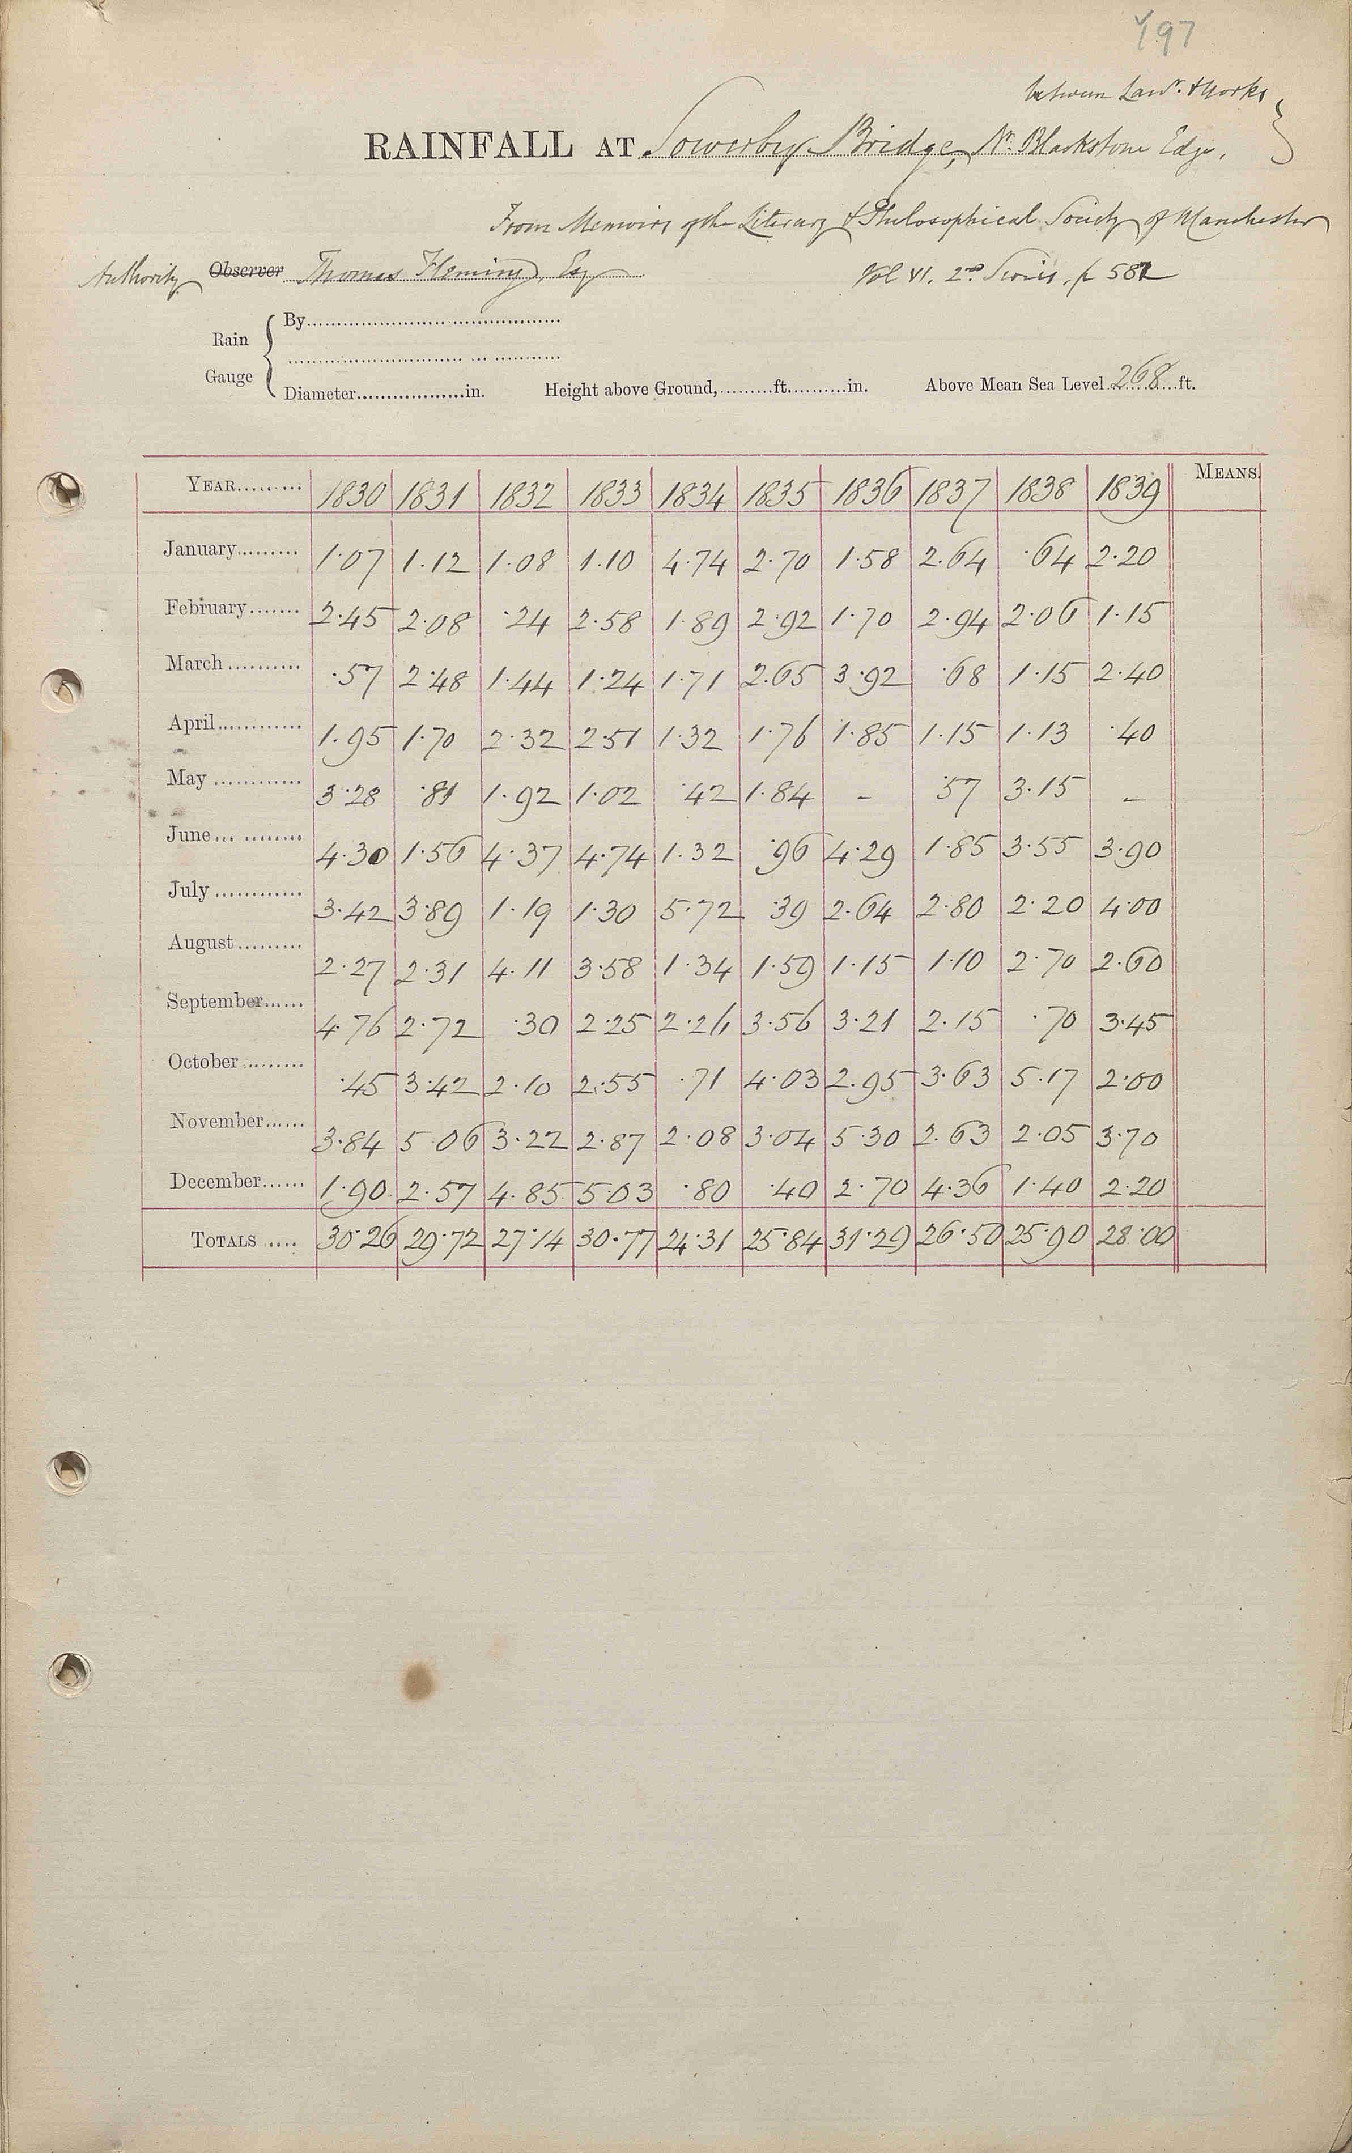 Y97
between Lanc. & Yorks
RAINFALL AT Sowerby Bridge, Nr. Blackstone Edge.
From Memoirs of the Literary & Philosophical Society of Manchester
Authority Observer Thomas Fleming, Esq Vol VI. 2nd Series, p 582
Rain Gauge { By
Diameter in. Height above Ground, ft. in. Above Mean Sea Level 268 ft.
YEAR 1830 1831 1832 1833 1834 1835 1836 1837 1838 1839 MEANS.
January 1·07 1·12 1·08 1·10 4·74 2·70 1·58 2·64 ·64 2·20
February 2·45 2·08 ·24 2·58 1·89 2·92 1·70 2·94 2·06 1·15
March ·57 2·48 1·44 1·24 1·71 2·65 3·92 ·68 1·15 2·40
April 1·95 1·70 2·32 2·51 1·32 1·76 1·85 1·15 1·13 ·40
May 3·28 ·81 1·92 1·02 ·42 1·84 – ·57 3·15 –
June 4·30 1·56 4·37 4·74 1·32 ·96 4·29 1·85 3·55 3·90
July 3·42 3·89 1·19 1·30 5·72 ·39 2·64 2·80 2·20 4·00
August 2·27 2·31 4·11 3·58 1·34 1·59 1·15 1·10 2·70 2·60
September 4·76 2·72 ·30 2·25 2·26 3·56 3·21 2·15 ·70 3·45
October ·45 3·42 2·10 2·55 ·71 4·03 2·95 3·63 5·17 2·00
November 3·84 5·06 3·22 2·87 2·08 3·04 5·30 2·63 2·05 3·70
December 1·90 2·57 4·85 5·03 ·80 ·40 2·70 4·36 1·40 2·20
TOTALS 30·26 29·72 27·14 30·77 24·31 25·84 31·29 26·50 25·90 28·00